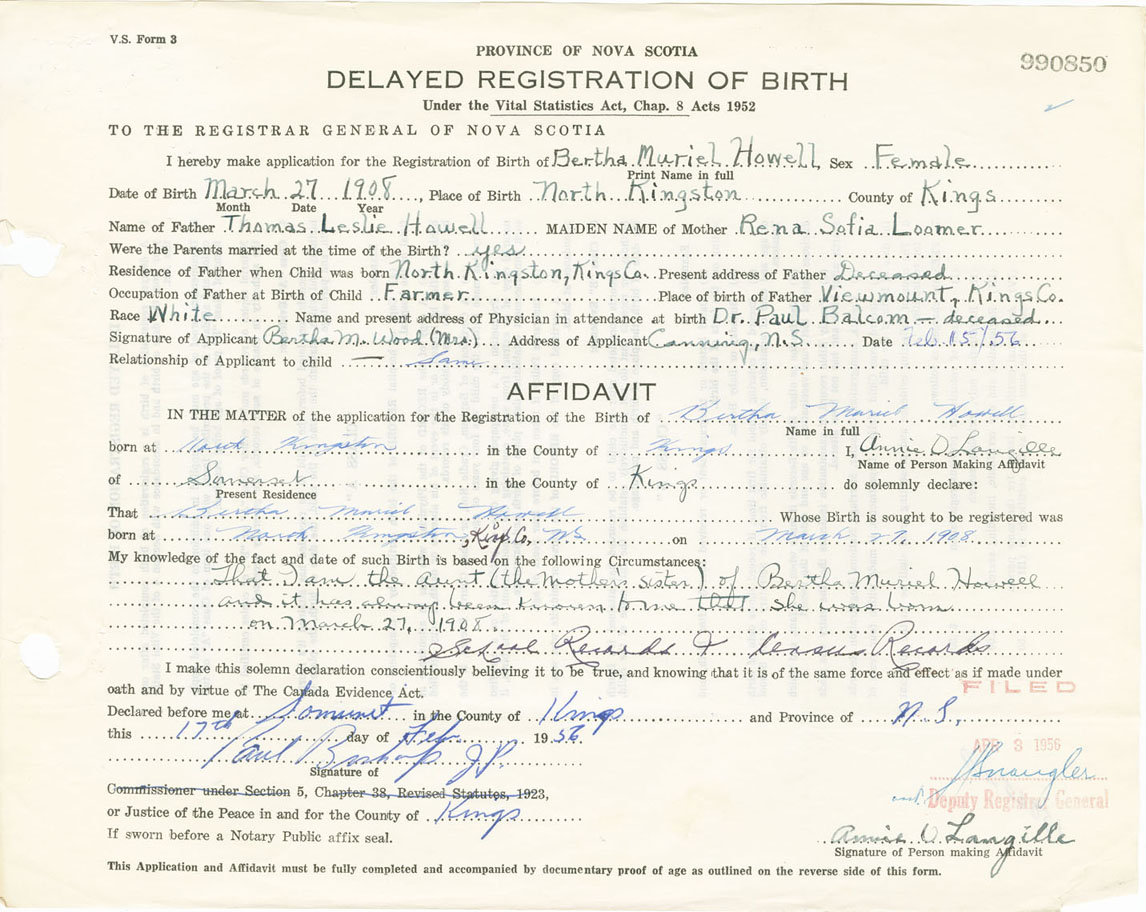 V.S. Form 3
PROVINCE OF NOVA SCOTIA
990850
DELAYED REGISTRATION OF BIRTH
Under the Vital Statistics Act, Chap. 8 Acts 1952
TO THE REGISTRAR GENERAL OF NOVA SCOTIA
I hereby make application for the Registration of Birth of Bertha Muriel Howell, Sex Female
Print Name in full
Date of Birth March 27 1908, Place of Birth North Kingston County of Kings
Month Date Year
Name of Father Thomas Leslie Howell MAIDEN NAME of Mother Rena Sofia Loomer
Were the Parents married at the time of the Birth? yes
Residence of Father when Child was born North Kingston, Kings Co. Present address of Father Deceased
Occupation of Father at Birth of Child Farmer Place of birth of Father Viewmount, Kings Co.
Race White Name and present address of Physician in attendance at birth Dr. Paul Balcom — deceased
Signature of Applicant Bertha M. Wood (Mrs.) Address of Applicant Canning, N.S. Date Feb. 15/56
Relationship of Applicant to child — Same
AFFIDAVIT
IN THE MATTER of the application for the Registration of the Birth of Bertha Muriel Howell
Name in full
born at North Kingston in the County of Kings I, Annie D. Langille
Name of Person Making Affidavit
of Somerset in the County of Kings do solemnly declare:
Present Residence
That Bertha Muriel Howell Whose Birth is sought to be registered was
born at North Kingston, Kings Co. NS. on March 27, 1908
My knowledge of the fact and date of such Birth is based on the following Circumstances:
That I am the aunt (the mother's sister) of Bertha Muriel Howell
and it has always been known to me that she was born
on March 27, 1908.
School Records & Census Records
I make this solemn declaration conscientiously believing it to be true, and knowing that it is of the same force and effect as if made under
oath and by virtue of The Canada Evidence Act.
FILED
Declared before me at Somerset in the County of Kings and Province of N.S.,
this 17th day of Feb. 1956
APR 3 1956
Paul Bishop J.P.
Signature of
Commissioner under Section 5, Chapter 38, Revised Statutes, 1923,
Deputy Registrar General
or Justice of the Peace in and for the County of Kings
If sworn before a Notary Public affix seal.
Annie D. Langille
Signature of Person making Affidavit
This Application and Affidavit must be fully completed and accompanied by documentary proof of age as outlined on the reverse side of this form.